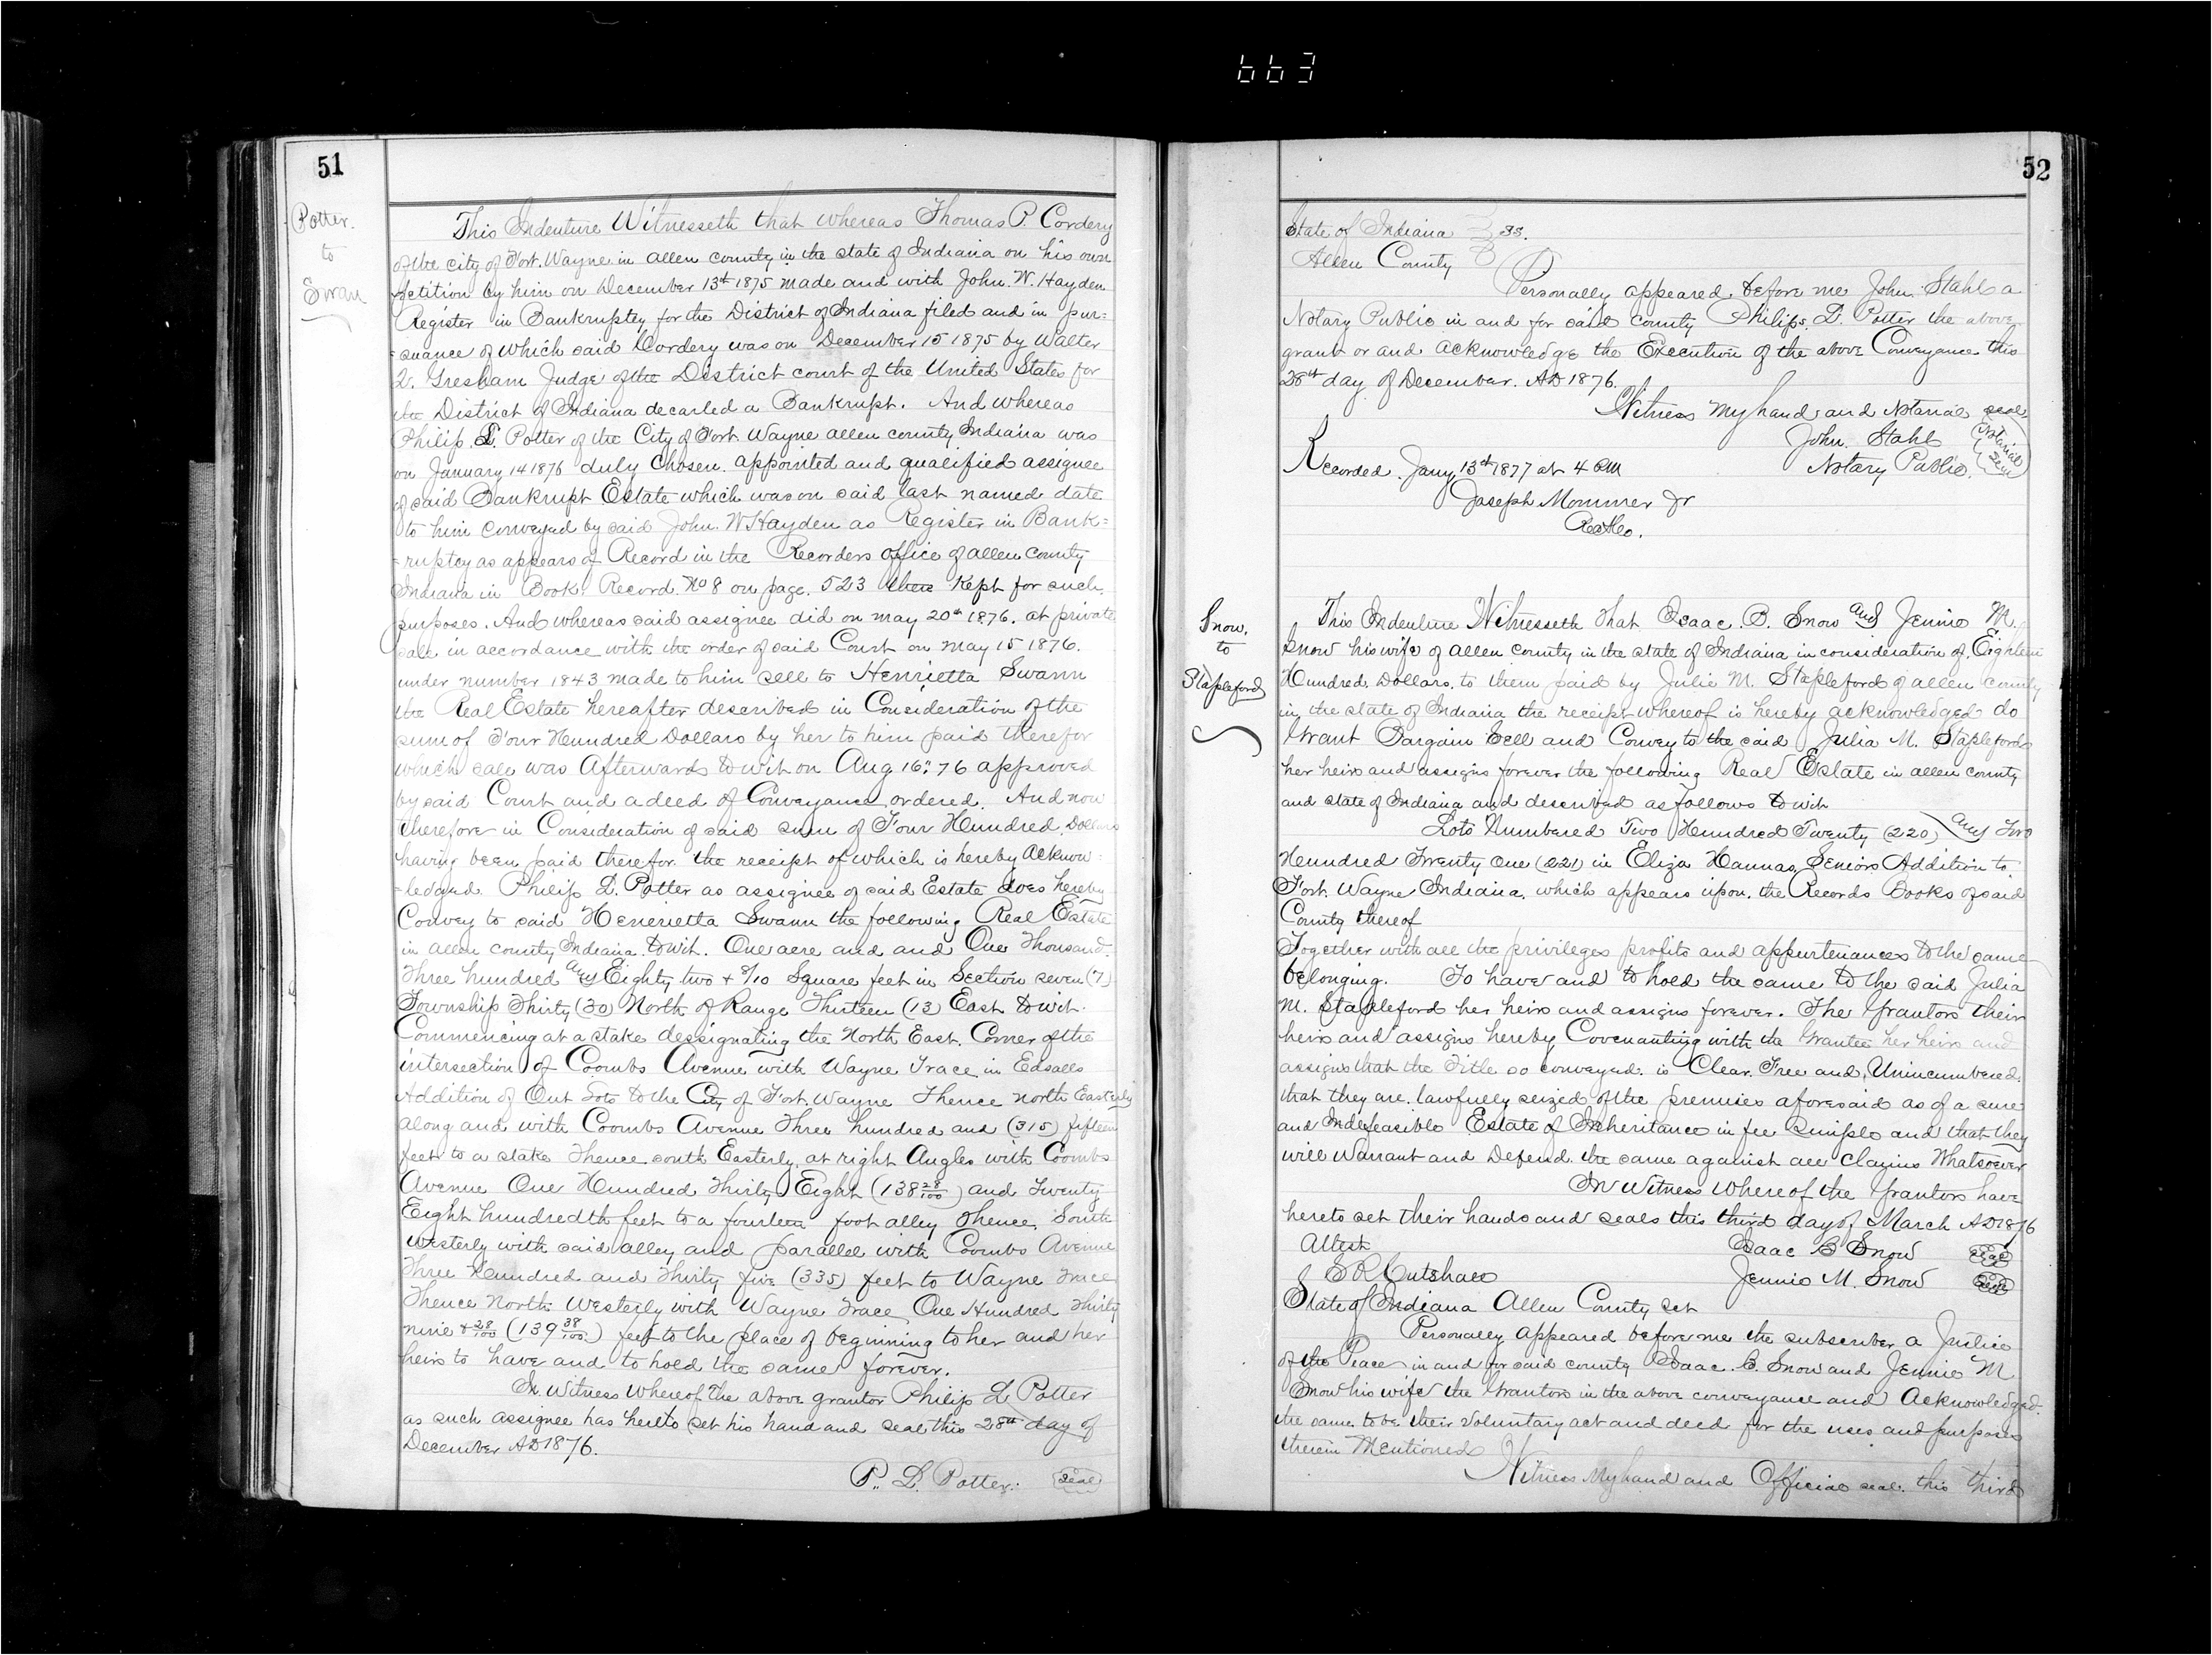 663
51
Potter.
to
Swan
This Indenture Witnesseth that whereas Thomas P. Cordery
of the city of Fort. Wayne in allen county in the state of Indiana on his own
petition by him on December 13th 1875 made and with John. W. Hayden
Register in Bankruptcy for the District of Indiana filed and in pur=
=suance of which said Cordery was on December 15 1875 by Walter
Q. Gresham Judge of the District court of the United States for
the District of Indiana decarled a Bankrupt. And whereas
Philip. L. Potter of the City of Fort. Wayne allen county Indiana was
on January 14 1876 duly chosen. appointed and qualified assignee
of said Bankrupt Estate which was on said last named date
to him conveyed by said John. W Hayden as Register in Bank=
=ruptcy as appears of Record in the Recorders office of allen county
Indiana in Book. Record No 8 on page. 523 there Kept for such.
purposes. And whereas said assignee did on may 20th 1876. at private
sale in accordance with the order of said Court on may 15 1876.
under number 1843 made to him sell to Henrietta Swann
the Real Estate hereafter described in Consideration of the
sum of Four Hundred Dollars by her to him paid therefor
which sale was Afterwards to wit on Aug 16" 76 approved
by said Court and a deed of Conveyance ordered. And now
therefore in Consideration of said sum of Four Hundred Dollars
having been paid therefor the receipt of which is hereby Acknow=
=ledged. Philip L. Potter as assignee of said Estate does hereby
Convey to said Henerietta Swann the following Real Estate
in allen county Indiana. to wit. One acre and and One Thousand.
Three hundred and Eighty two + 8/10 Square feet in Section seven (7)
Township Thirty (30) North of Range Thirteen (13) East to wit.
Commencing at a stake dessignating the North East. Corner of the
intersection of Coombs Avenue with Wayne Trace in Edsalls
Addition of Out Lots to the City of Fort. Wayne Thence north Easterly
along and with Coombs Avenue Three hundred and (315) fifteen
feet to a stake Thence south Easterly. at right Angles with Coombs
Avenue One Hundred Thirty Eight (138 28/100) and Twenty
Eight hundredth feet to a fourteen foot alley Thence, South
Westerly with said alley and parallel with Coombs Avenue
Three Hundred and Thirty five (335) feet to Wayne Trace
Thence North Westerly with Wayne Trace One Hundred Thirty
nine + 28/100 (139 38/100) feet to the place of beginning to her and her
heirs to have and to hold the same forever.
In Witness Whereof The above grantor Philip L Potter
as such assignee has hereto set his hand and seal this 28th day of
December AD 1876.
P. L. Potter. Seal
52
State of Indiana } ss.
Allen County }
Personally appeared. before me John. Stahl a
Notary Public in and for said county Philip. L. Potter the above
grant or and acknowledge the Execution of the above Conveyance this
28th day of December. AD 1876.
Witness my hand and Notarial seal
John. Stahl Notarial
Notary Public. Seal
Recorded. Jany 13th 1877 at 4 PM
Joseph Mommer Jr
RecAlCo.
Snow.
to
Stapleford
This Indenture Witnesseth That Isaac. B. Snow and Jennie M.
Snow his wife of allen county in the state of Indiana in consideration of. Eighteen
Hundred. Dollars. to them paid by Julie M. Stapleford of allen county
in the state of Indiana the receipt whereof is hereby acknowledged do
Grant Bargain Sell and Convey to the said Julia M. Stapleford
her heirs and assigns forever the following Real Estate in allen county
and state of Indiana and described as follows to wit
Lots Numbered Two Hundred Twenty (220) and Two
Hundred Twenty One (221) in Eliza Hannas, Seniors Addition to.
Fort. Wayne Indiana. which appears upon. the Records Books of said
County thereof
Together with all the privileges profits and appurtenances to the same
belonging. To have and to hold the same to the said Julia
M. Stapleford her heirs and assigns forever. The Grantors their
heirs and assigns hereby Covenanting with the Grantee her heirs and
assigns that the Title so conveyed. is Clear. Free and Unincumbered.
that they are. lawfully seized of the premises aforesaid as of a sure
and Indefeasible Estate of Inheritance in fee simple and that they
will Warrant and Defend. the same against all Claims Whatsoever
In Witness Whereof the Grantors have
hereto set their hands and seals this third day of March AD 1876
Attest Isaac B Snow Seal
S R Cutshaw Jennie M. Snow Seal
State of Indiana Allen County, set
Personally appeared before me the subscriber a Justice
of the Peace in and for said county Isaac. B. Snow and Jennie M
Snow his wife the Grantors in the above conveyance and Acknowledged.
the same to be their voluntary act and deed for the uses and purposes
therein Mentioned
Witness My hand and Official seal. this third